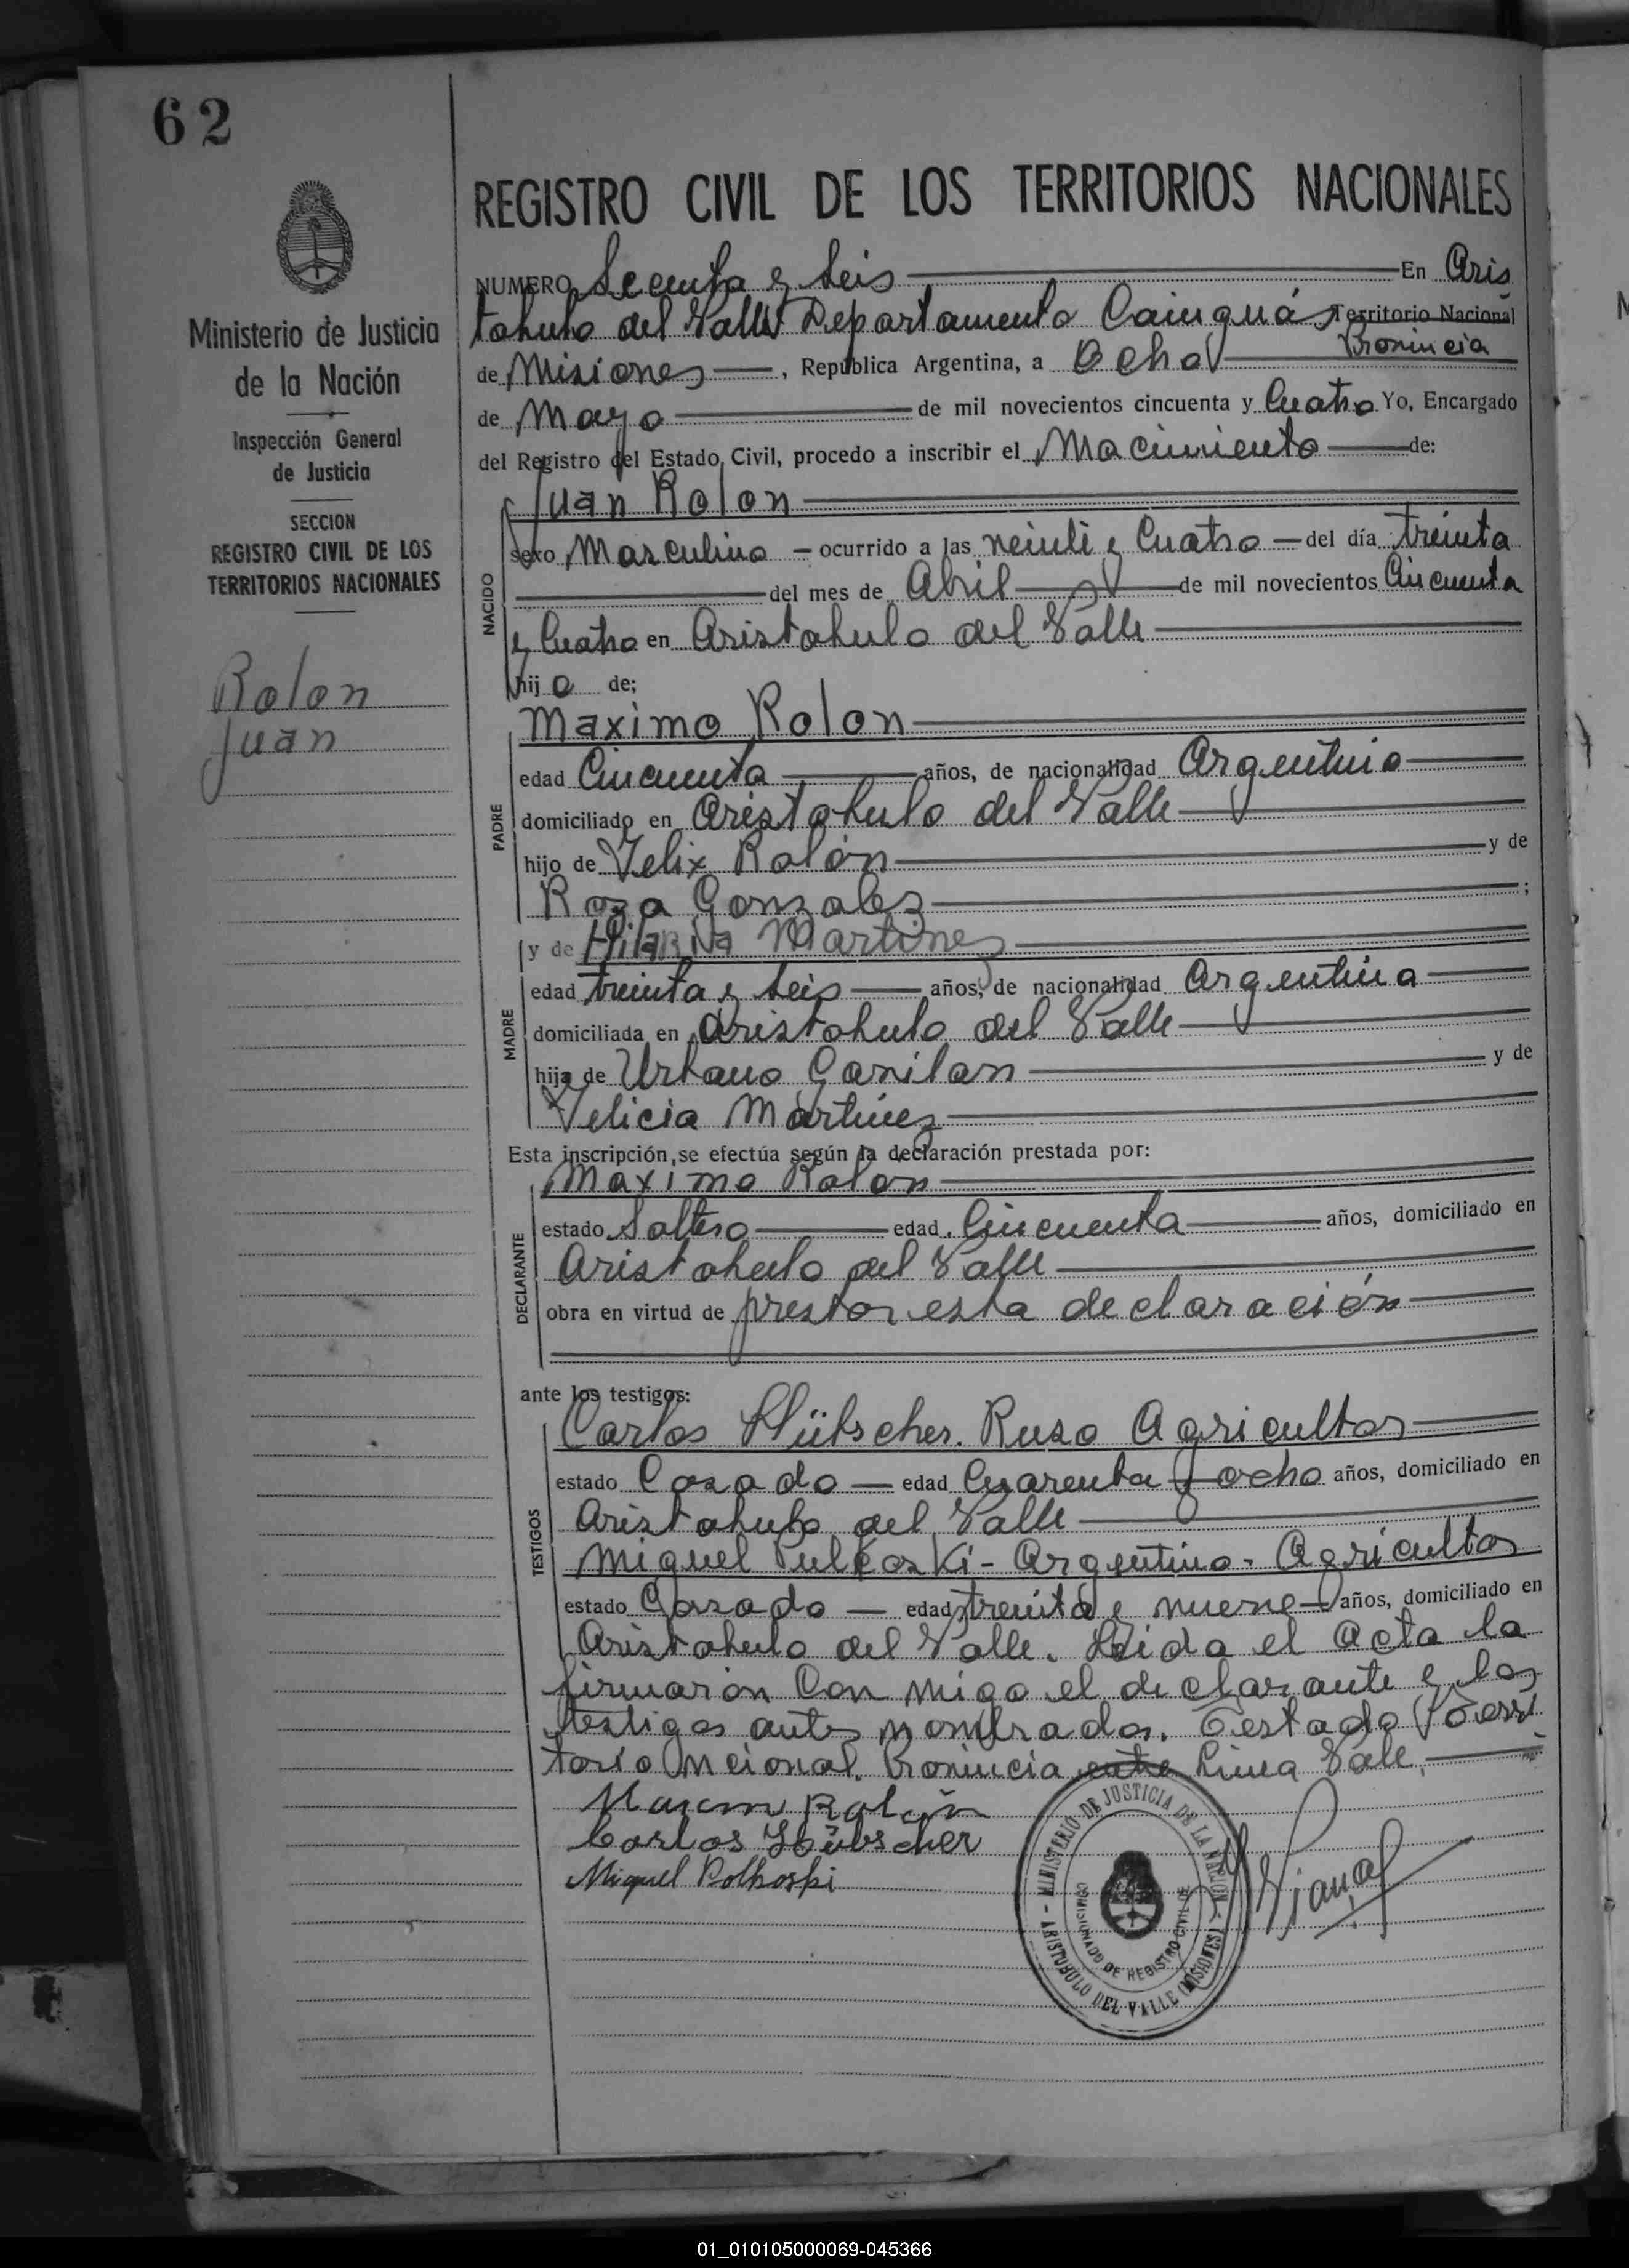 62
REGISTRO CIVIL DE LOS TERRITORIOS NACIONALES
Ministerio de Justicia
de la Nación
Inspección General
de Justicia
SECCION
REGISTRO CIVIL DE LOS
TERRITORIOS NACIONALES
Rolon
Juan
NUMERO y seis En Aris
tobulo del Valle Departamento Cainguás Territorio Nacional
Provincia
de Misiones, República Argentina, a Ocho
de Mayo de mil novecientos cincuenta y Cuatro Yo, Encargado
del Registro del Estado Civil, procedo a inscribir el Nacimiento de:
Juan Rolon
NACIDO
sexo Masculino ocurrido a las veinti y Cuatro del día treinta
del mes de Abril de mil novecientos Cincuenta
y Cuatro en Aristobulo del Valle
hijo de;
PADRE
Maximo Rolon
edad Cincuenta años, de nacionalidad Argentino
domiciliado en Aristobulo del Valle
hijo de Felix Rolón y de
Rosa Gonzalez ;
MADRE
y de Hilarina Martinez
edad treinta y seis años, de nacionalidad Argentina
domiciliada en Aristobulo del Valle
hija de Urbano Gavilan y de
Felicia Martinez
Esta inscripción, se efectúa según la declaración prestada por:
DECLARANTE
Maximo Rolon
estado Soltero edad Cincuenta años, domiciliado en
Aristobulo del Valle
obra en virtud de prestar esta declaración
ante los testigos:
TESTIGOS
Carlos Hübscher. Ruso Agricultor
estado Casado edad Cuarenta y ocho años, domiciliado en
Aristobulo del Valle
Miguel - Argentino - Agricultor
estado Casado edad treinta y nueve años, domiciliado en
Aristobulo del Valle. Leida el Acta la
firmaron Con migo el declarante y los
testigos antes nombrados. Testado Terri
torio Ncional. Provincia entre Linea Vale.
Rolón
Carlos Hübscher
Miguel Polkoski
MINISTERIO DE JUSTICIA DE LA NACION
COMISIONADO DE REGISTRO CIVIL DE
ARISTOBULO DEL VALLE (MISIONES)
01_010105000069-045366